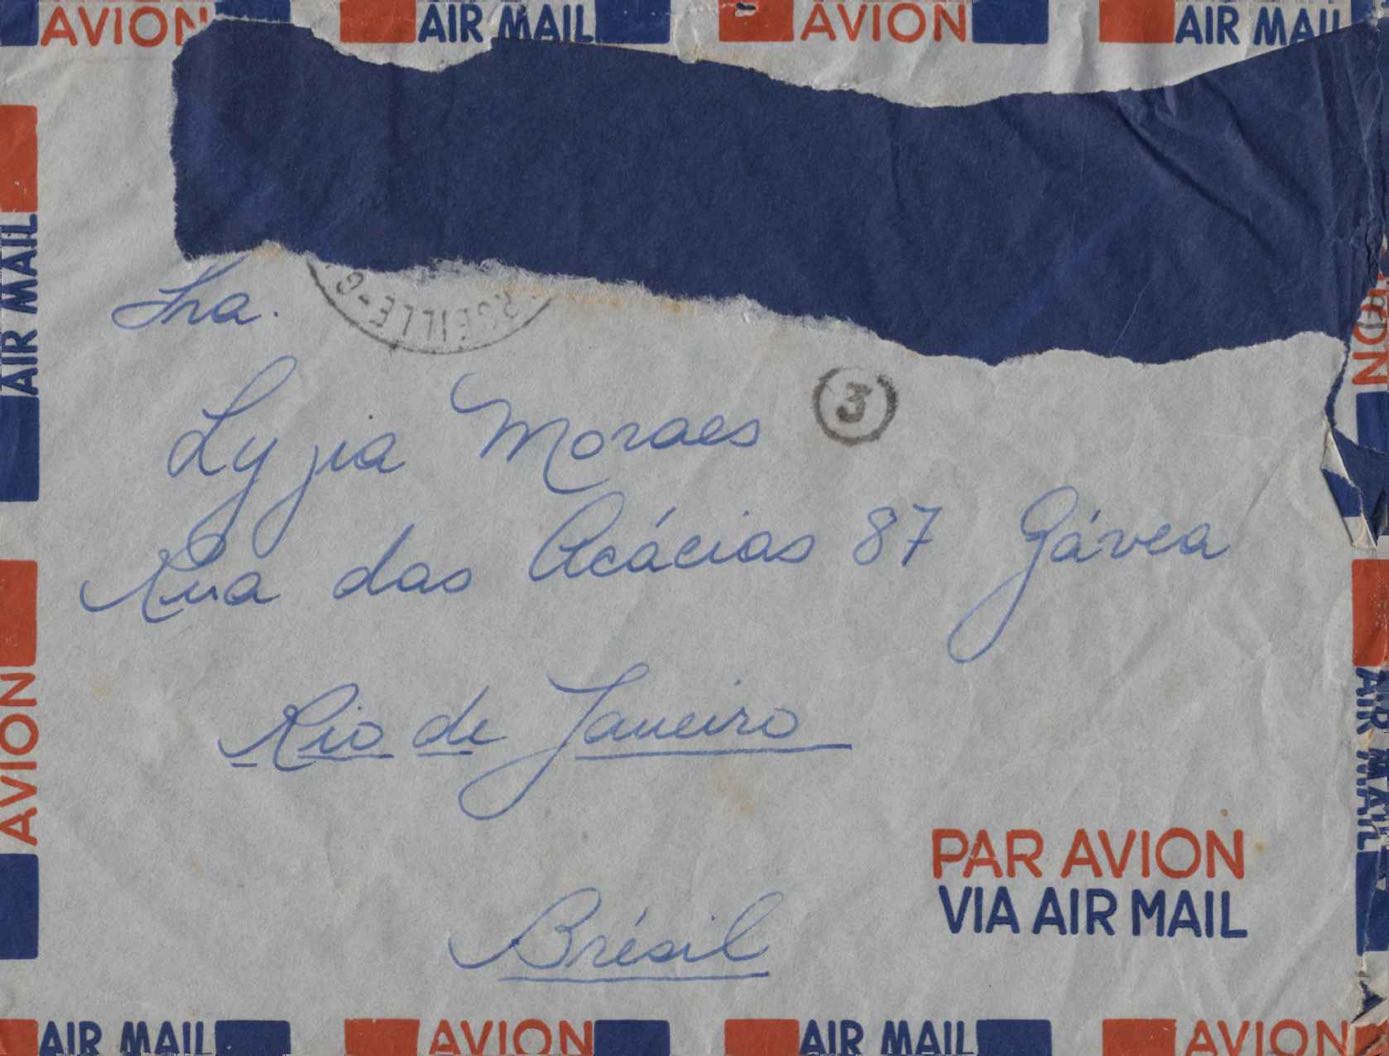 AVION AIR MAIL AVION AIR MAIL
AIR MAIL
AVION
Sra.
RSEILLE-G
3
Lygia Moraes
Rua das Acácias 87 Gávea
Rio de Janeiro
Brésil
PAR AVION
VIA AIR MAIL
AIR MAIL
AIR MAIL AVION AIR MAIL AVION